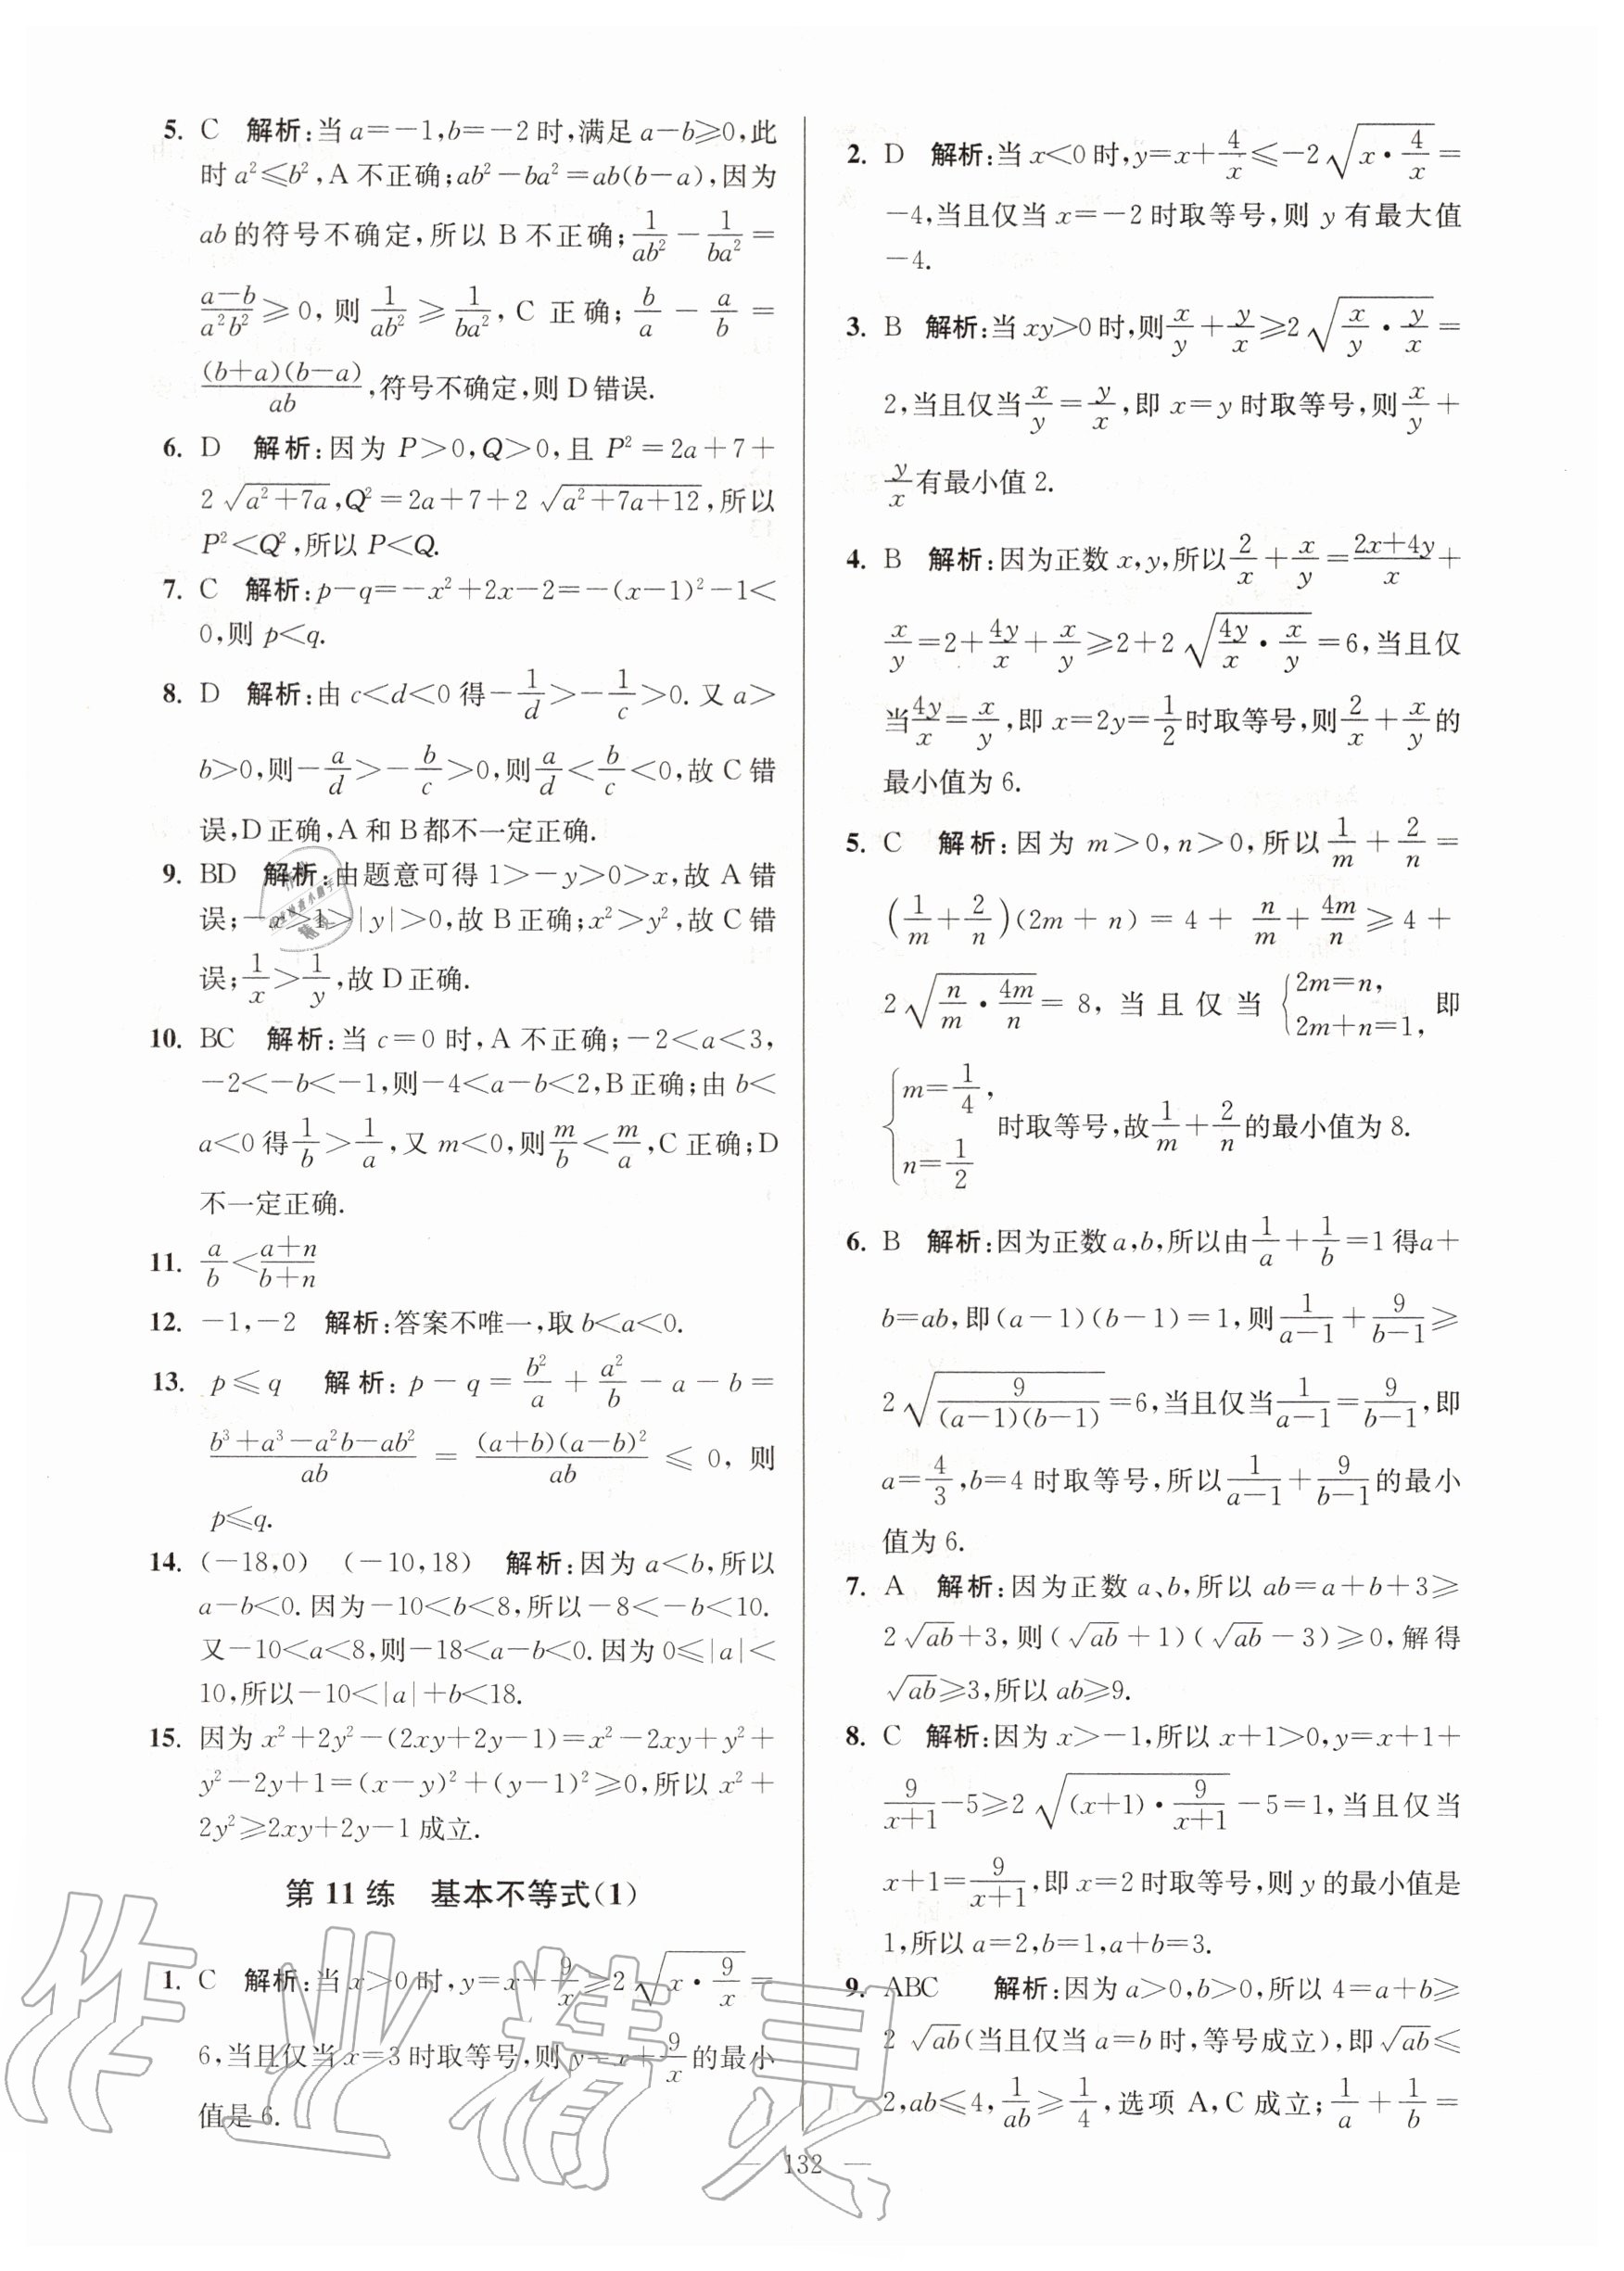 5. C 解析:当 a=-1,b=-2 时,满足 a-b≥0,此
时 a²≤b²,A 不正确;ab²-ba²=ab(b-a),因为
ab的符号不确定,所以 B 不正确;1/(ab²)-1/(ba²)=
(a-b)/(a²b²)≥0,则 1/(ab²)≥1/(ba²),C 正确;b/a-a/b=
(b+a)(b-a)/(ab),符号不确定,则 D 错误.
6. D 解析:因为 P>0,Q>0,且 P²=2a+7+
2√(a²+7a),Q²=2a+7+2√(a²+7a+12),所以
P²<Q²,所以 P<Q.
7. C 解析:p-q=-x²+2x-2=-(x-1)²-1<
0,则 p<q.
8. D 解析:由 c<d<0 得-1/d>-1/c>0.又 a>
b>0,则-a/d>-b/c>0,则a/d<b/c<0,故 C 错
误,D正确,A 和 B都不一定正确.
9. BD 解析:由题意可得 1>-y>0>x,故 A 错
误;-x>1>|y|>0,故 B正确;x²>y²,故 C 错
误;1/x>1/y,故 D 正确.
10. BC 解析:当 c=0 时,A 不正确;-2<a<3,
-2<-b<-1,则-4<a-b<2,B正确;由 b<
a<0 得1/b>1/a,又 m<0,则m/b<m/a,C 正确;D
不一定正确.
11. a/b<(a+n)/(b+n)
12. -1,-2 解析:答案不唯一,取 b<a<0.
13. p≤q 解析:p-q=b²/a+a²/b-a-b=
(b³+a³-a²b-ab²)/(ab)=(a+b)(a-b)²/(ab)≤0,则
p≤q.
14. (-18,0) (-10,18) 解析:因为 a<b,所以
a-b<0.因为-10<b<8,所以-8<-b<10.
又-10<a<8,则-18<a-b<0.因为 0≤|a|<
10,所以-10<|a|+b<18.
15. 因为 x²+2y²-(2xy+2y-1)=x²-2xy+y²+
y²-2y+1=(x-y)²+(y-1)²≥0,所以 x²+
2y²≥2xy+2y-1 成立.
第 11 练 基本不等式(1)
1. C 解析:当 x>0 时,y=x+9/x≥2√(x·9/x)=
6,当且仅当 x=3 时取等号,则 y=x+9/x的最小
值是 6.
2. D 解析:当 x<0 时,y=x+4/x≤-2√(x·4/x)=
-4,当且仅当 x=-2 时取等号,则 y 有最大值
-4.
3. B 解析:当 xy>0 时,则x/y+y/x≥2√(x/y·y/x)=
2,当且仅当x/y=y/x,即 x=y 时取等号,则x/y+
y/x有最小值 2.
4. B 解析:因为正数 x,y,所以2/x+x/y=(2x+4y)/x+
x/y=2+4y/x+x/y≥2+2√(4y/x·x/y)=6,当且仅
当4y/x=x/y,即 x=2y=1/2时取等号,则2/x+x/y的
最小值为 6.
5. C 解析:因为 m>0,n>0,所以1/m+2/n=
(1/m+2/n)(2m+n)=4+n/m+4m/n≥4+
2√(n/m·4m/n)=8,当且仅当{2m=n, 2m+n=1,即
{m=1/4, n=1/2 时取等号,故1/m+2/n的最小值为 8.
6. B 解析:因为正数 a,b,所以由1/a+1/b=1 得a+
b=ab,即(a-1)(b-1)=1,则1/(a-1)+9/(b-1)≥
2√(9/((a-1)(b-1)))=6,当且仅当1/(a-1)=9/(b-1),即
a=4/3,b=4 时取等号,所以1/(a-1)+9/(b-1)的最小
值为 6.
7. A 解析:因为正数 a、b,所以 ab=a+b+3≥
2√(ab)+3,则(√(ab)+1)(√(ab)-3)≥0,解得
√(ab)≥3,所以 ab≥9.
8. C 解析:因为 x>-1,所以 x+1>0,y=x+1+
9/(x+1)-5≥2√((x+1)·9/(x+1))-5=1,当且仅当
x+1=9/(x+1),即 x=2 时取等号,则 y 的最小值是
1,所以 a=2,b=1,a+b=3.
9. ABC 解析:因为 a>0,b>0,所以 4=a+b≥
2√(ab)(当且仅当 a=b 时,等号成立),即√(ab)≤
2,ab≤4,1/(ab)≥1/4,选项 A,C 成立;1/a+1/b=
— 132 —
作业精灵